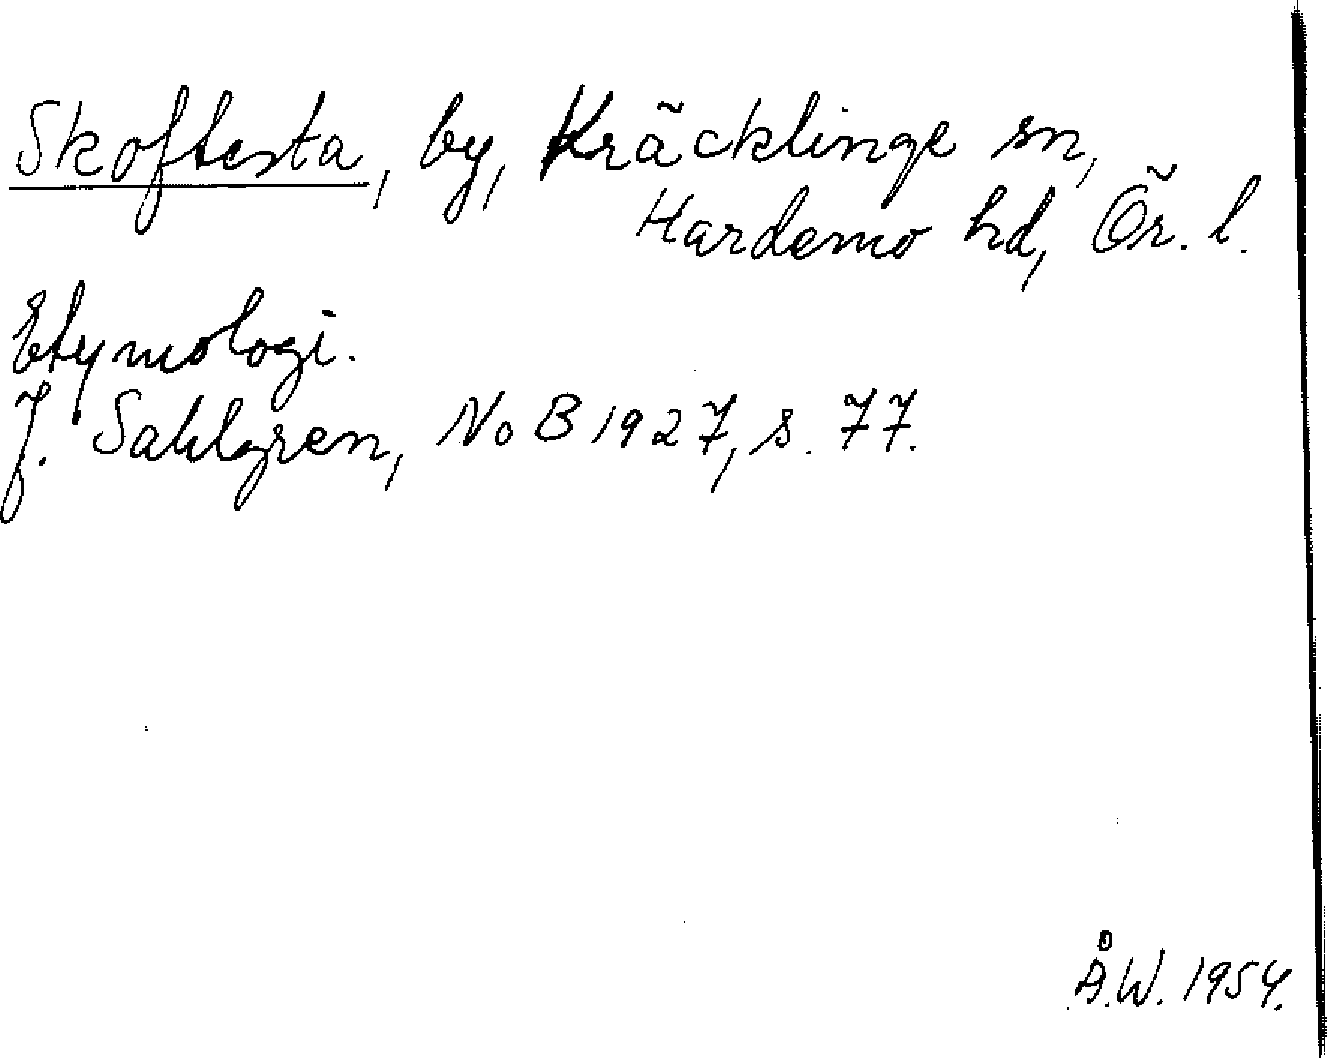 Skoftesta, by, Kräcklinge sn,
Hardemo hd, Ör. l.
Etymologi.
J. Sahlgren, NoB 1927, s. 77.
Å.W. 1954.